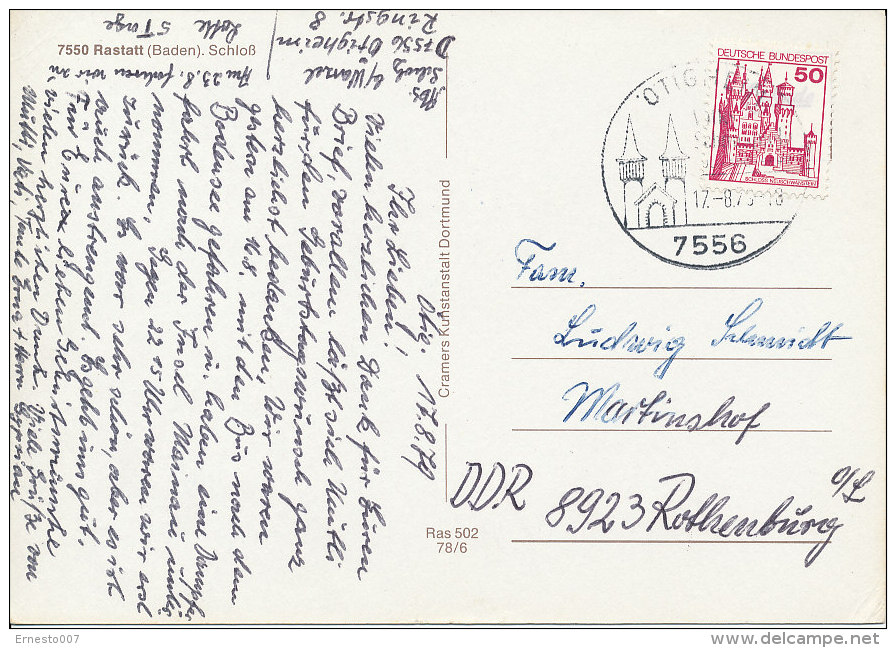 7550 Rastatt (Baden). Schloß
Abs
Ringstr. 8
D 7556 Ötigheim
Ötig. 17.8.79
Ihr Lieben!
Vielen herzlichen Dank für Euren
Brief, vor allem läßt sich Mutti
für den Geburtstagswunsch ganz
herzlichst bedanken. Wir waren
gestern am 16.8. mit dem Bus nach dem
Bodensee gefahren u. haben eine Dampfer
fahrt nach der Insel Mainau unter
nommen. Gegen 22 15 Uhr waren wir erst
zurück. Es war sehr schön, aber es ist
auch anstrengend. Es geht uns gut.
Für Eure lieben Geburtswünsche
vielen herzlichen Dank. Viele Grüße von
Mutti, Vati, Tante
Am 23.8. fahren wir zu
5 Tage
Cramers Kunstanstalt Dortmund
Ras 502
78/6
DEUTSCHE BUNDESPOST
50
SCHLOSS NEUSCHWANSTEIN
ÖTIGH
17.-8.79-18
7556
Fam.
Ludwig Schmidt
Martinshof
DDR 8923 Rothenburg
o/L
Ernesto007
delcampe.net